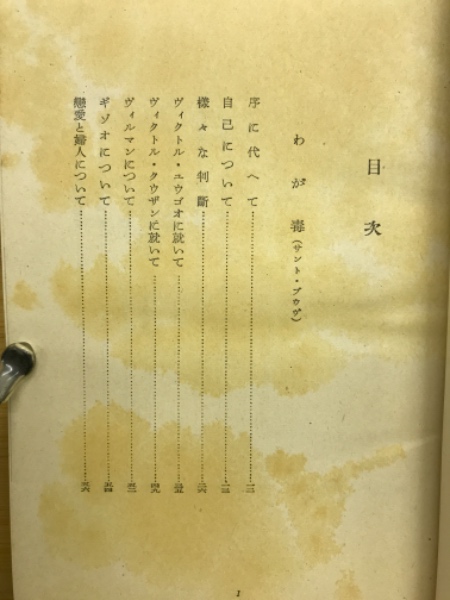 目次
わが毒（サント・ブウヴ）
序に代へて……一二
自己について……一三
樣々な判斷……二六
ヴィクトル・ユウゴオに就いて……三五
ヴィクトル・クウザンに就いて……四九
ヴィルマンについて……五二
ギゾオについて……五四
戀愛と婦人について……五六
1